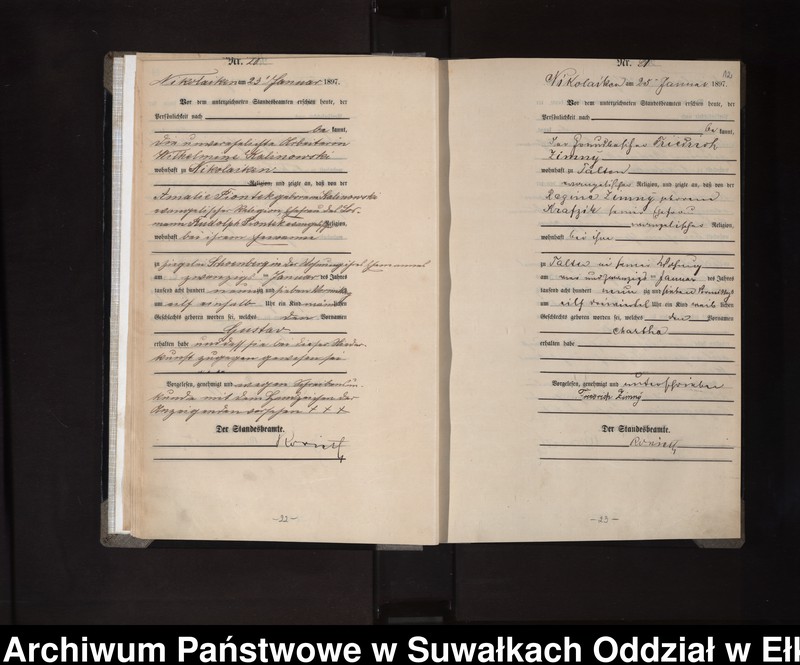 Nr. 20
Nikolaiken am 25. Januar 1897.
Vor dem unterzeichneten Standesbeamten erschien heute, der
Persönlichkeit nach
be kannt,
die unverehelichte Arbeiterin
Wilhelmine Kalinowski
wohnhaft zu Nikolaiken
Religion, und zeigte an, daß von der
Amalie Piontek geborene Kalinowski
evangelischer Religion, Ehefrau des
Rudolf Piontek Religion,
wohnhaft bei ihrem Ehemanne
zu Schoenberg in der Wohnung
am Januar des Jahres
tausend acht hundert neunzig und sieben Vormittags
um elf einhalb Uhr ein Kind männlichen
Geschlechts geboren worden sei, welches den Vornamen
Gustav
erhalten habe und daß sie bei dieser Nieder-
kunft zugegen gewesen sei
Vorgelesen, genehmigt und wegen Schreibensun-
kunde mit dem Handzeichen der
Anzeigenden versehen + + +
Der Standesbeamte.
-22-
Nr. 21
12
Nikolaiken am 25. Januar 1897.
Vor dem unterzeichneten Standesbeamten erschien heute, der
Persönlichkeit nach
be kannt,
Der Grundbesitzer Friedrich
Zimny
wohnhaft zu Talten
evangelischer Religion, und zeigte an, daß von der
Regine Zimny geborene
seiner Ehefrau
evangelischer Religion,
wohnhaft bei ihm
zu Talten in seiner Wohnung
am ein und zwanzigsten Januar des Jahres
tausend acht hundert neun zig und sieben Vormittags
um elf Uhr ein Kind weiblichen
Geschlechts geboren worden sei, welches den Vornamen
Martha
erhalten habe
Vorgelesen, genehmigt und unterschrieben
Friedrich Zimny
Der Standesbeamte.
-23-
Archiwum Państwowe w Suwałkach Oddział w Eł